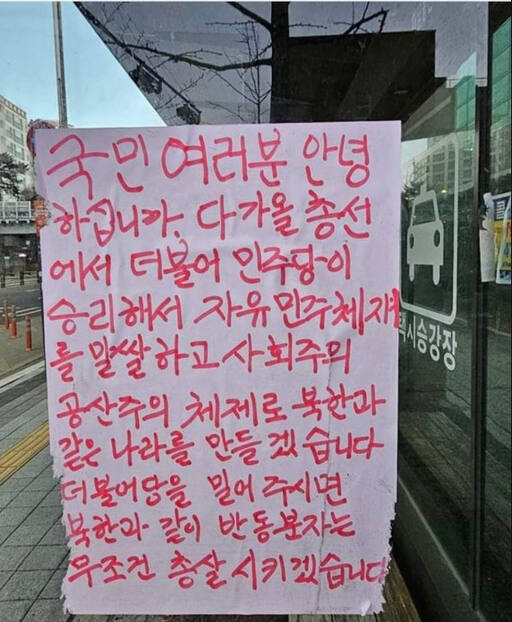 국민 여러분 안녕
하십니까. 다가올 총선
에서 더불어 민주당이
승리해서 자유민주체제
를 말쌀하고 사회주의
공산주의 체제로 북한과
같은 나라를 만들겠습니다
더불어당을 밀어주시면
북한과 같이 반동분자는
무조건 총살시키겠습니다
택시승강장